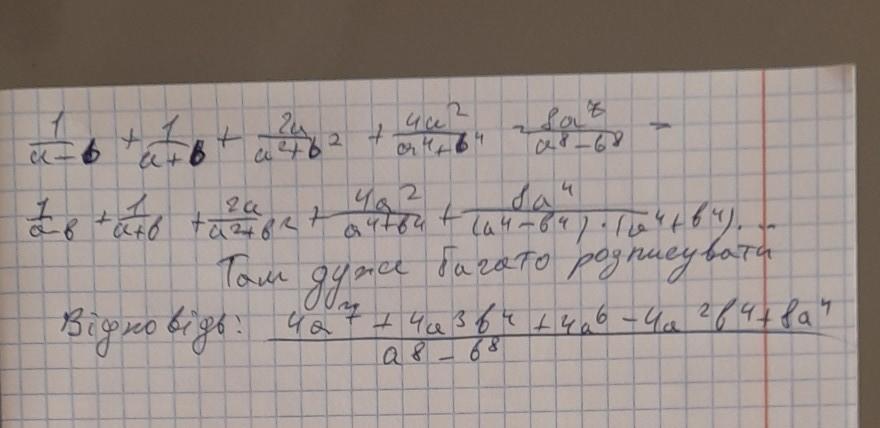 1/(a-b) + 1/(a+b) + 2a/(a²+b²) + 4a²/(a⁴+b⁴) = 8a⁷/(a⁸-b⁸) =
1/(a-b) + 1/(a+b) + 2a/(a²+b²) + 4a²/(a⁴+b⁴) + 8a⁴/((a⁴-b⁴)·(a⁴+b⁴)) ...
Там дуже багато розписувати
Відповідь: (4a⁷ + 4a³b⁴ + 4a⁶ - 4a²b⁴ + 8a⁴)/(a⁸-b⁸)